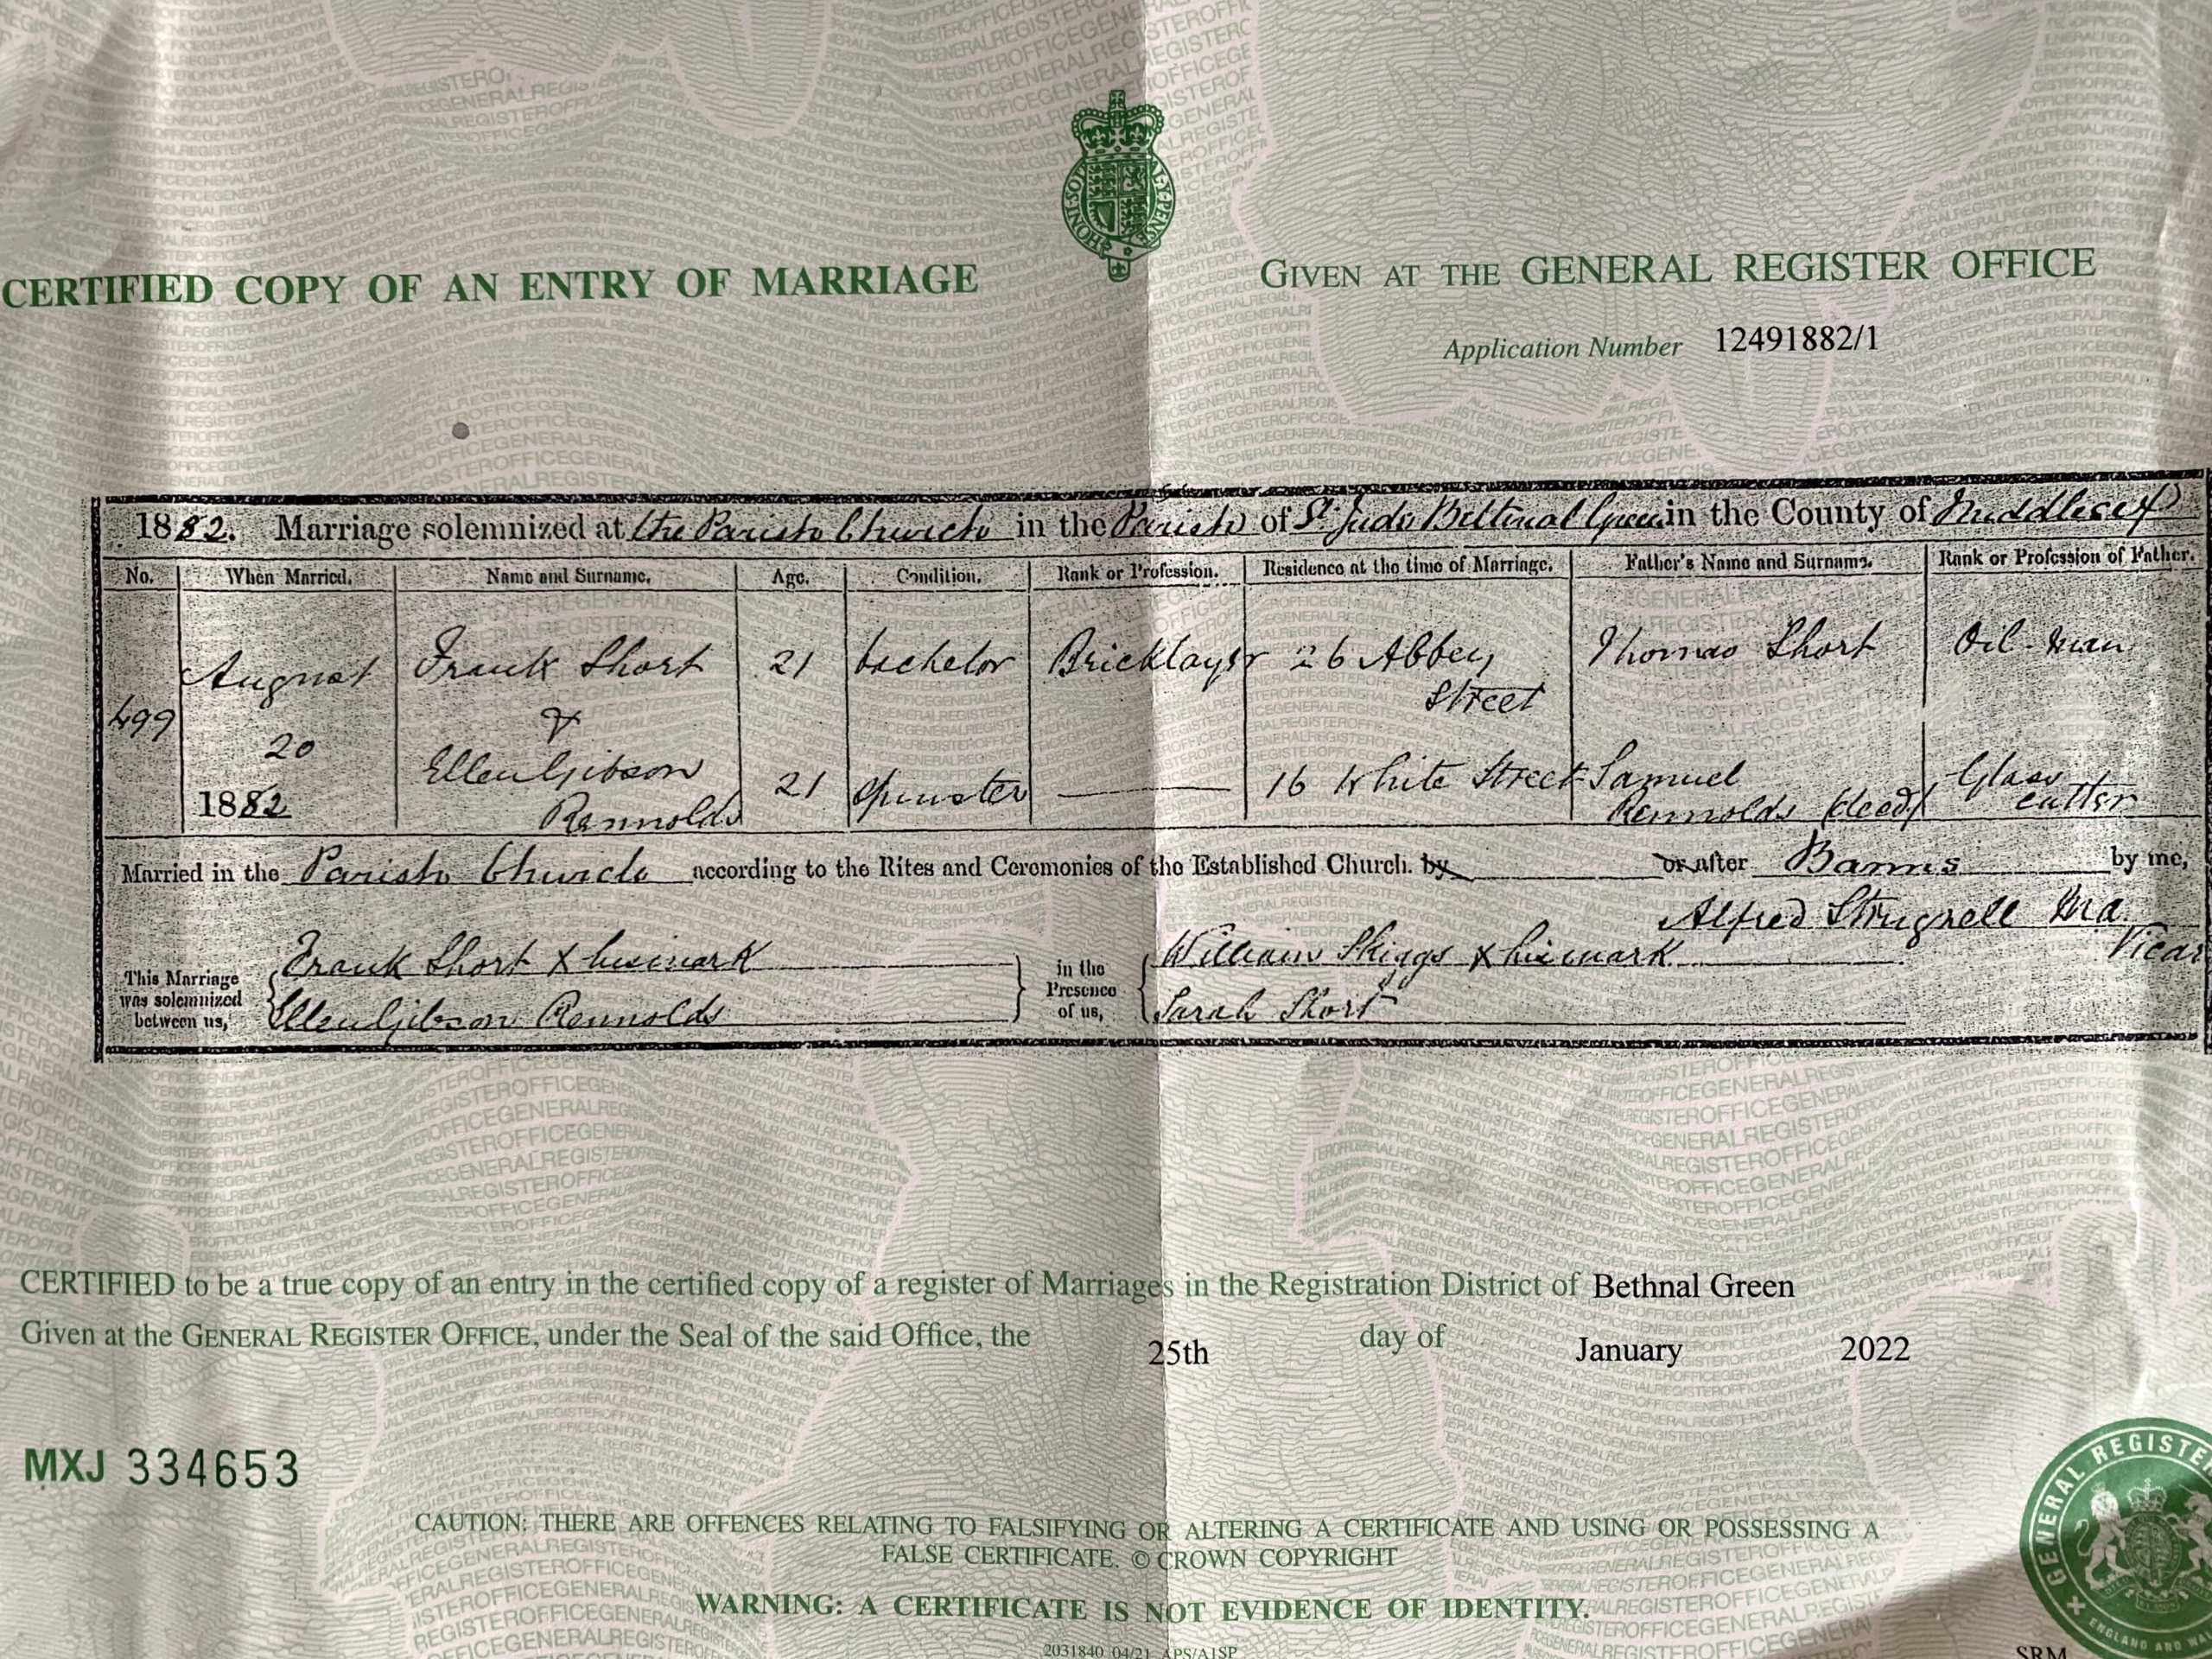 CERTIFIED COPY OF AN ENTRY OF MARRIAGE
GIVEN AT THE GENERAL REGISTER OFFICE
Application Number 12491882/1
1882. Marriage solemnized at the Parish Church in the Parish of St. Jude Bethnal Green in the County of Middlesex
No. When Married. Name and Surname. Age. Condition. Rank or Profession. Residence at the time of Marriage. Father's Name and Surname. Rank or Profession of Father.
499
August 20 1882
Frank Short 21 bachelor Bricklayer 26 Abbey Street Thomas Short Oil-man
&
Ellen Gibson Rennolds 21 Spinster 16 White Street Samuel Rennolds (dead) Glass cutter
Married in the Parish Church according to the Rites and Ceremonies of the Established Church. by or after Banns by me,
Alfred Strugnell M.A. Vicar
This Marriage was solemnized between us,
Frank Short X his mark
Ellen Gibson Rennolds
in the Presence of us,
William Skiggs X his mark
Sarah Short
CERTIFIED to be a true copy of an entry in the certified copy of a register of Marriages in the Registration District of Bethnal Green
Given at the GENERAL REGISTER OFFICE, under the Seal of the said Office, the 25th day of January 2022
MXJ 334653
CAUTION: THERE ARE OFFENCES RELATING TO FALSIFYING OR ALTERING A CERTIFICATE AND USING OR POSSESSING A
FALSE CERTIFICATE. © CROWN COPYRIGHT
WARNING: A CERTIFICATE IS NOT EVIDENCE OF IDENTITY.
2031840 04/21 APS/A1SP
SRM
GENERAL REGISTER
ENGLAND AND